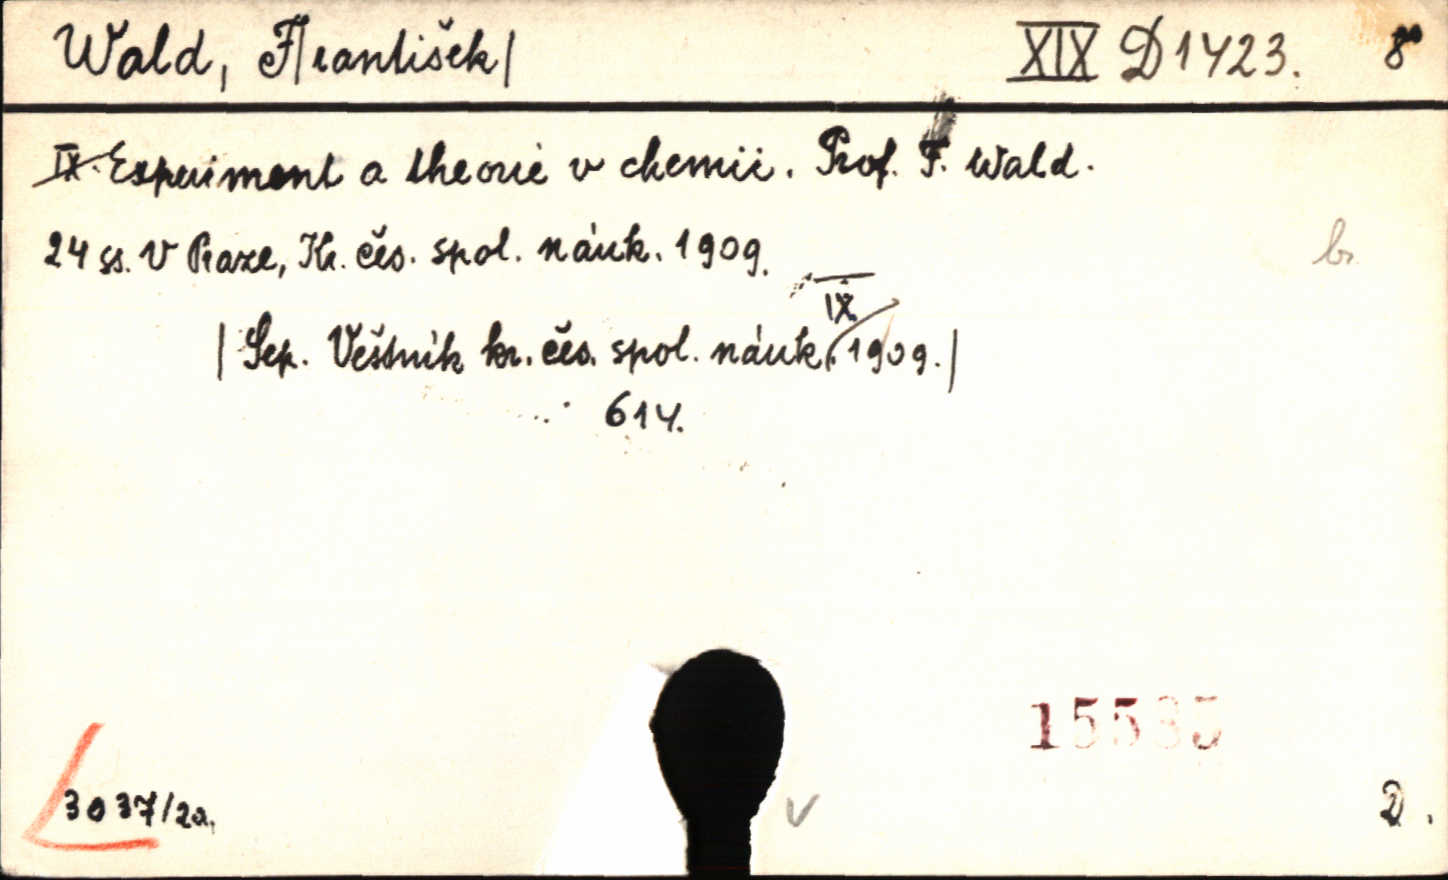 Wald, F/rantišek/ XIX D 1423. 8°
IX. Experiment a theorie v chemii. Prof. F. Wald.
24 ss. V Praze, Kr. čes. spol. náuk. 1909.
br.
IX.
/Sep. Věstník kr. čes. spol. náuk. 1909./
614.
3037/20.
D.